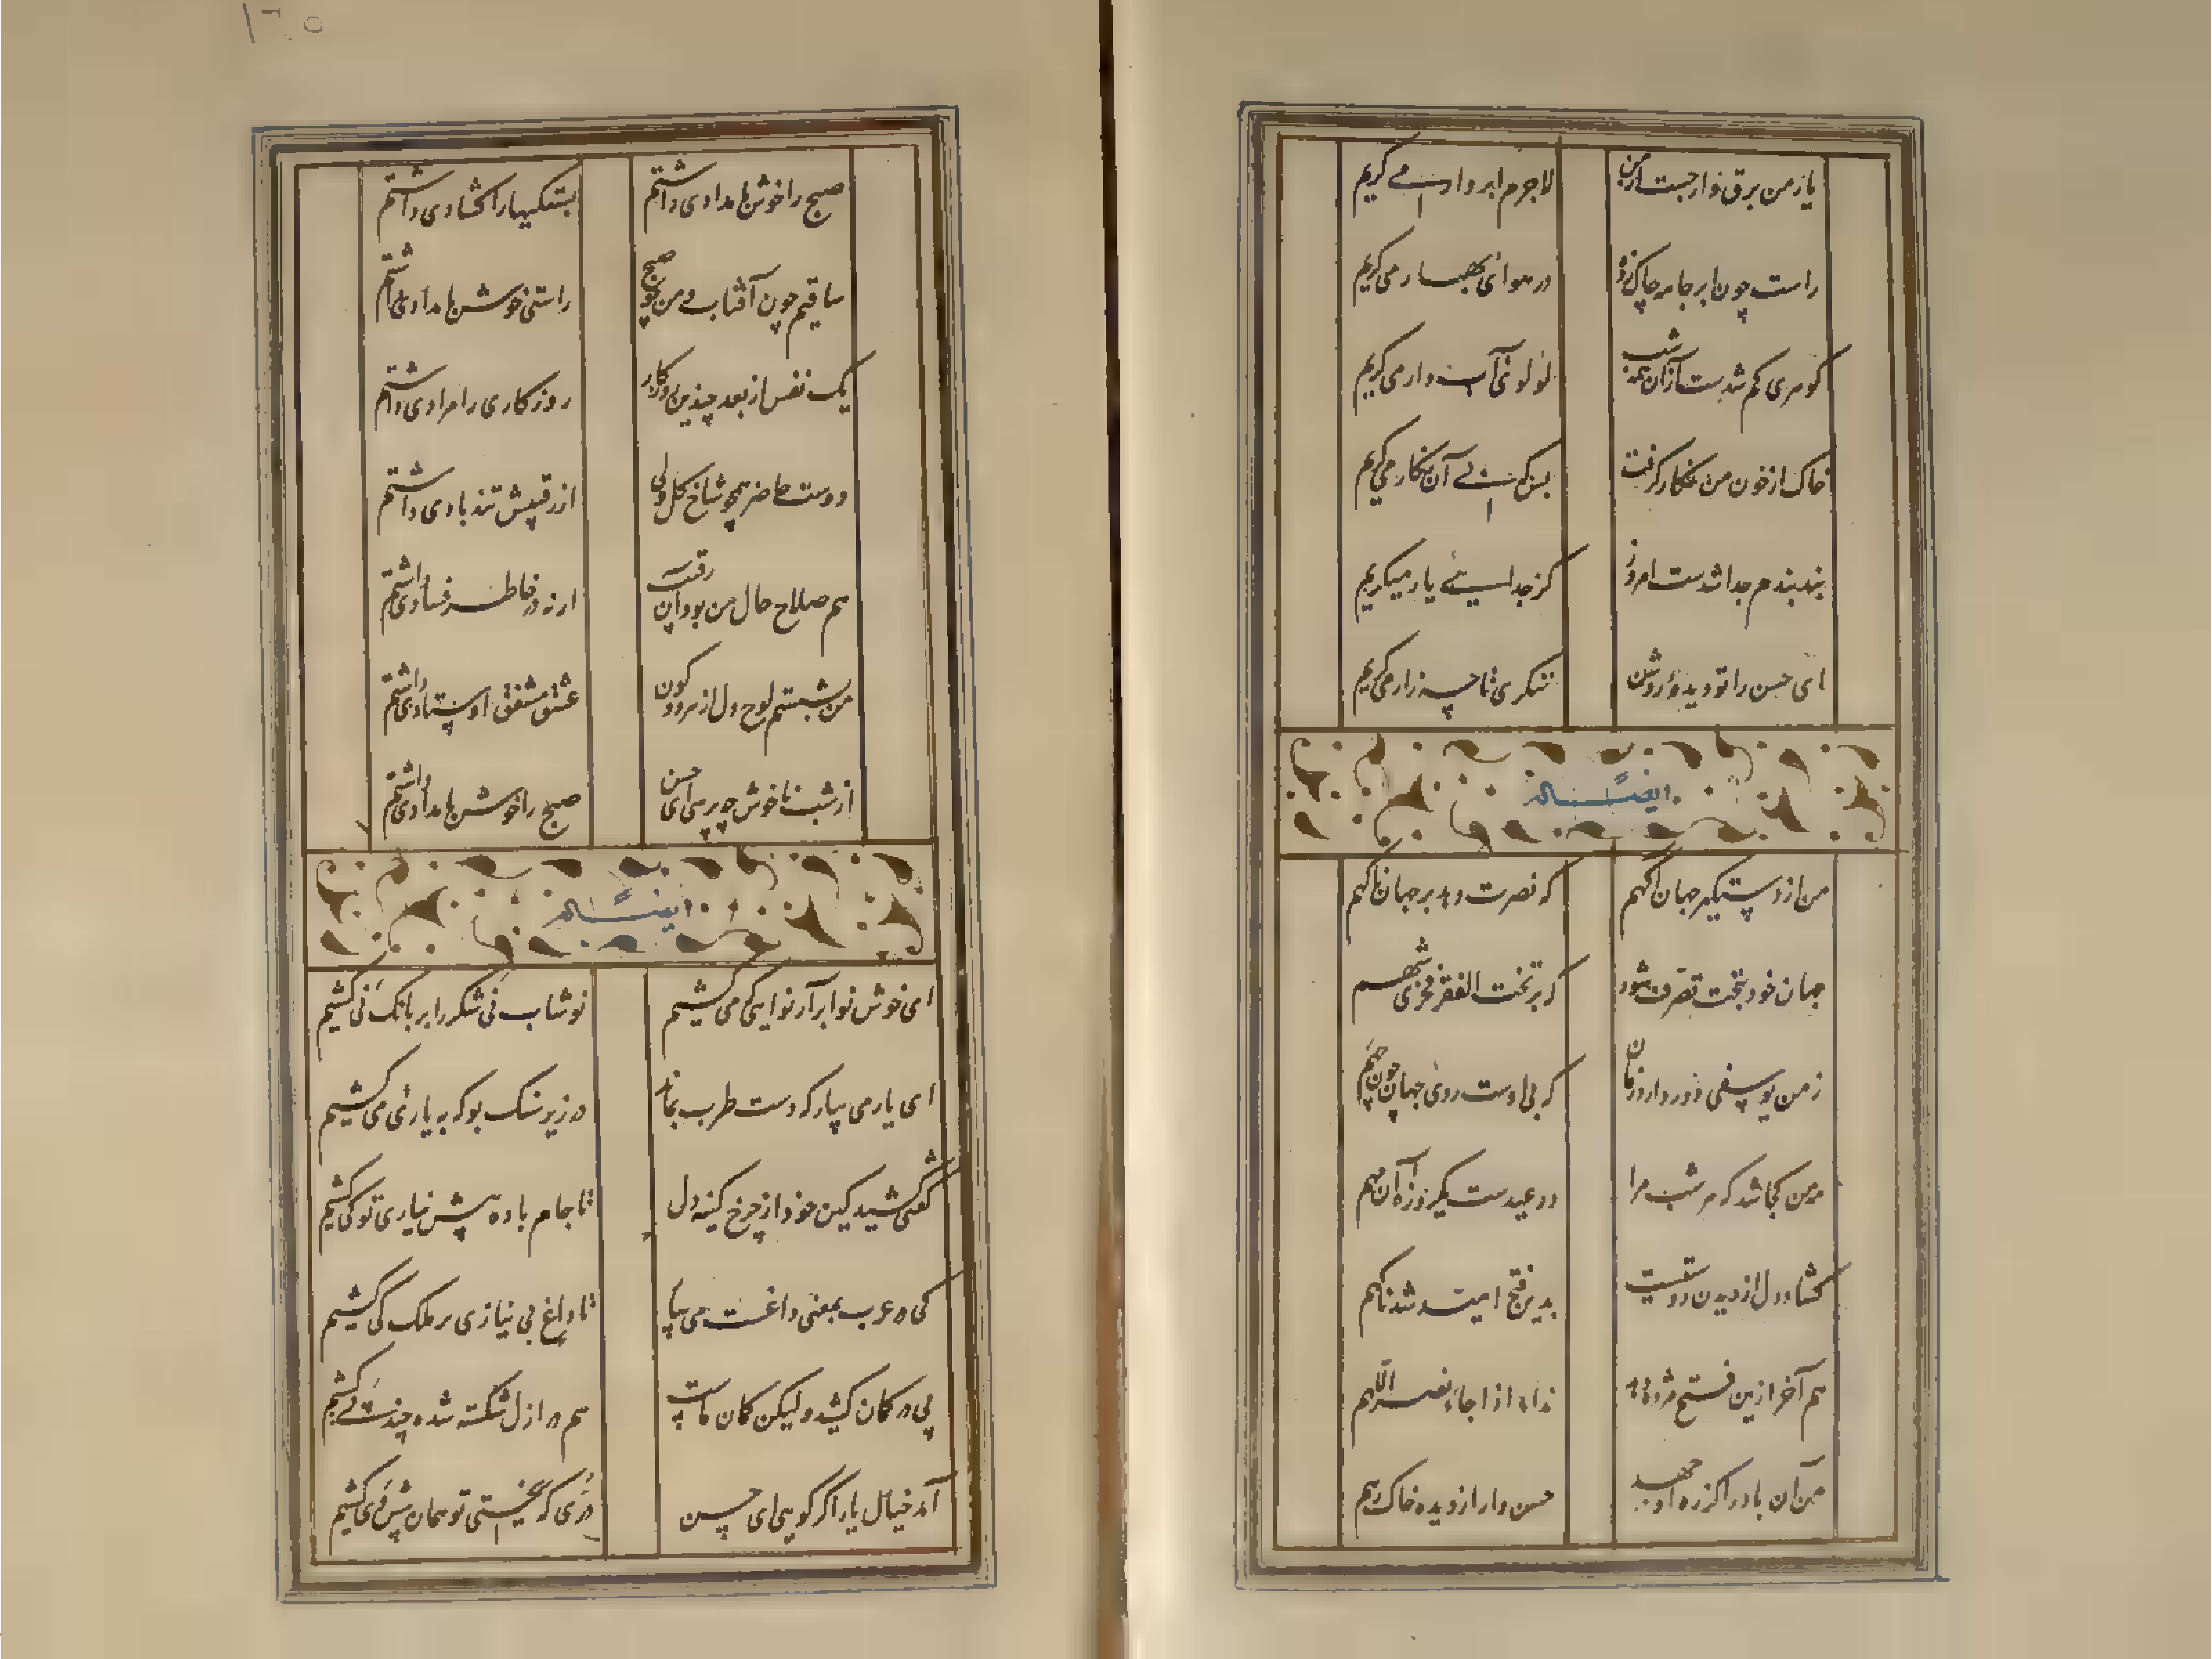 یار من برق وار جست از من
لاجرم ابر وار می گریم
راست چون ابر جامه چاک زده
در هوای بهار می گریم
گوهری گم شدست ازان همه شب
لولوئی آب دار می گریم
خاک از خون من نگار گرفت
بس که بی آن نگار می گریم
بند بندم جدا شدست امروز
کز جدایئ یار میگریم
ای حسن را تو دیدهٔ روشن
ننگری تا چه زار می گریم
ایضاً له
من از دستگیر جهان آگهم
که نصرت دهد بر جهان ناگهم
جهان خود بتخت تصرف شود
که بر تخت الفقر فخری شهم
ز من یوسفی دور دارد زمان
که بی اوست روی جهان چون چهم
من کجا شد که هر شب مرا
دو عیدست یکروزه آن مهم
کشاد دل از دیدن دوستست
بدین فتح امید شد ناگهم
هم آخر ازین فتح مژده دهد
ندای اذا جاء نصر اللهم
من آن باد را کز ره او جهد
حسن وار از دیده خاک رهم
۱۳۵
صبح را خوش بامدادی داشتم
بستگیها را کشادی داشتم
ساقیم چون آفتاب و من چو صبح
راستی خوش بامدادی داشتم
یک نفس از بعد چندین روزگار
روزگاری را مرادی داشتم
دوست حاضر همچو شاخ گل ولی
از رقیبش تندبادی داشتم
هم صلاح حال من بود آن رقیب
ارنه در خاطر فسادی داشتم
من بشستم لوح دل از هر دو کون
عشق مشفق اوستادی داشتم
از شب ناخوش چه پرسی ای حسن
صبح را خوش بامدادی داشتم
ایضاً له
ای خوش نوا برآر نوایی که می کشیم
نوشاب نی شکر را بر بانگ نی کشیم
ای یار می بیار که دست طرب نماند
در زیر سنگ بو که به یاری می کشیم
گفتی کشید کین خود از چرخ کینه دل
تا جام باده پیش نیاری تو کی کشیم
کی در عرب بمعنی داغست می بیا
تا داغ بی نیازی بر ملک کی کشیم
پی در کمان کشند ولیکن کمان ماست
هم در ازل شکسته شده چند پی کشیم
آمد خیال یار اگر گویی ای حسن
دری که ریختی تو همان پیش وی کشیم